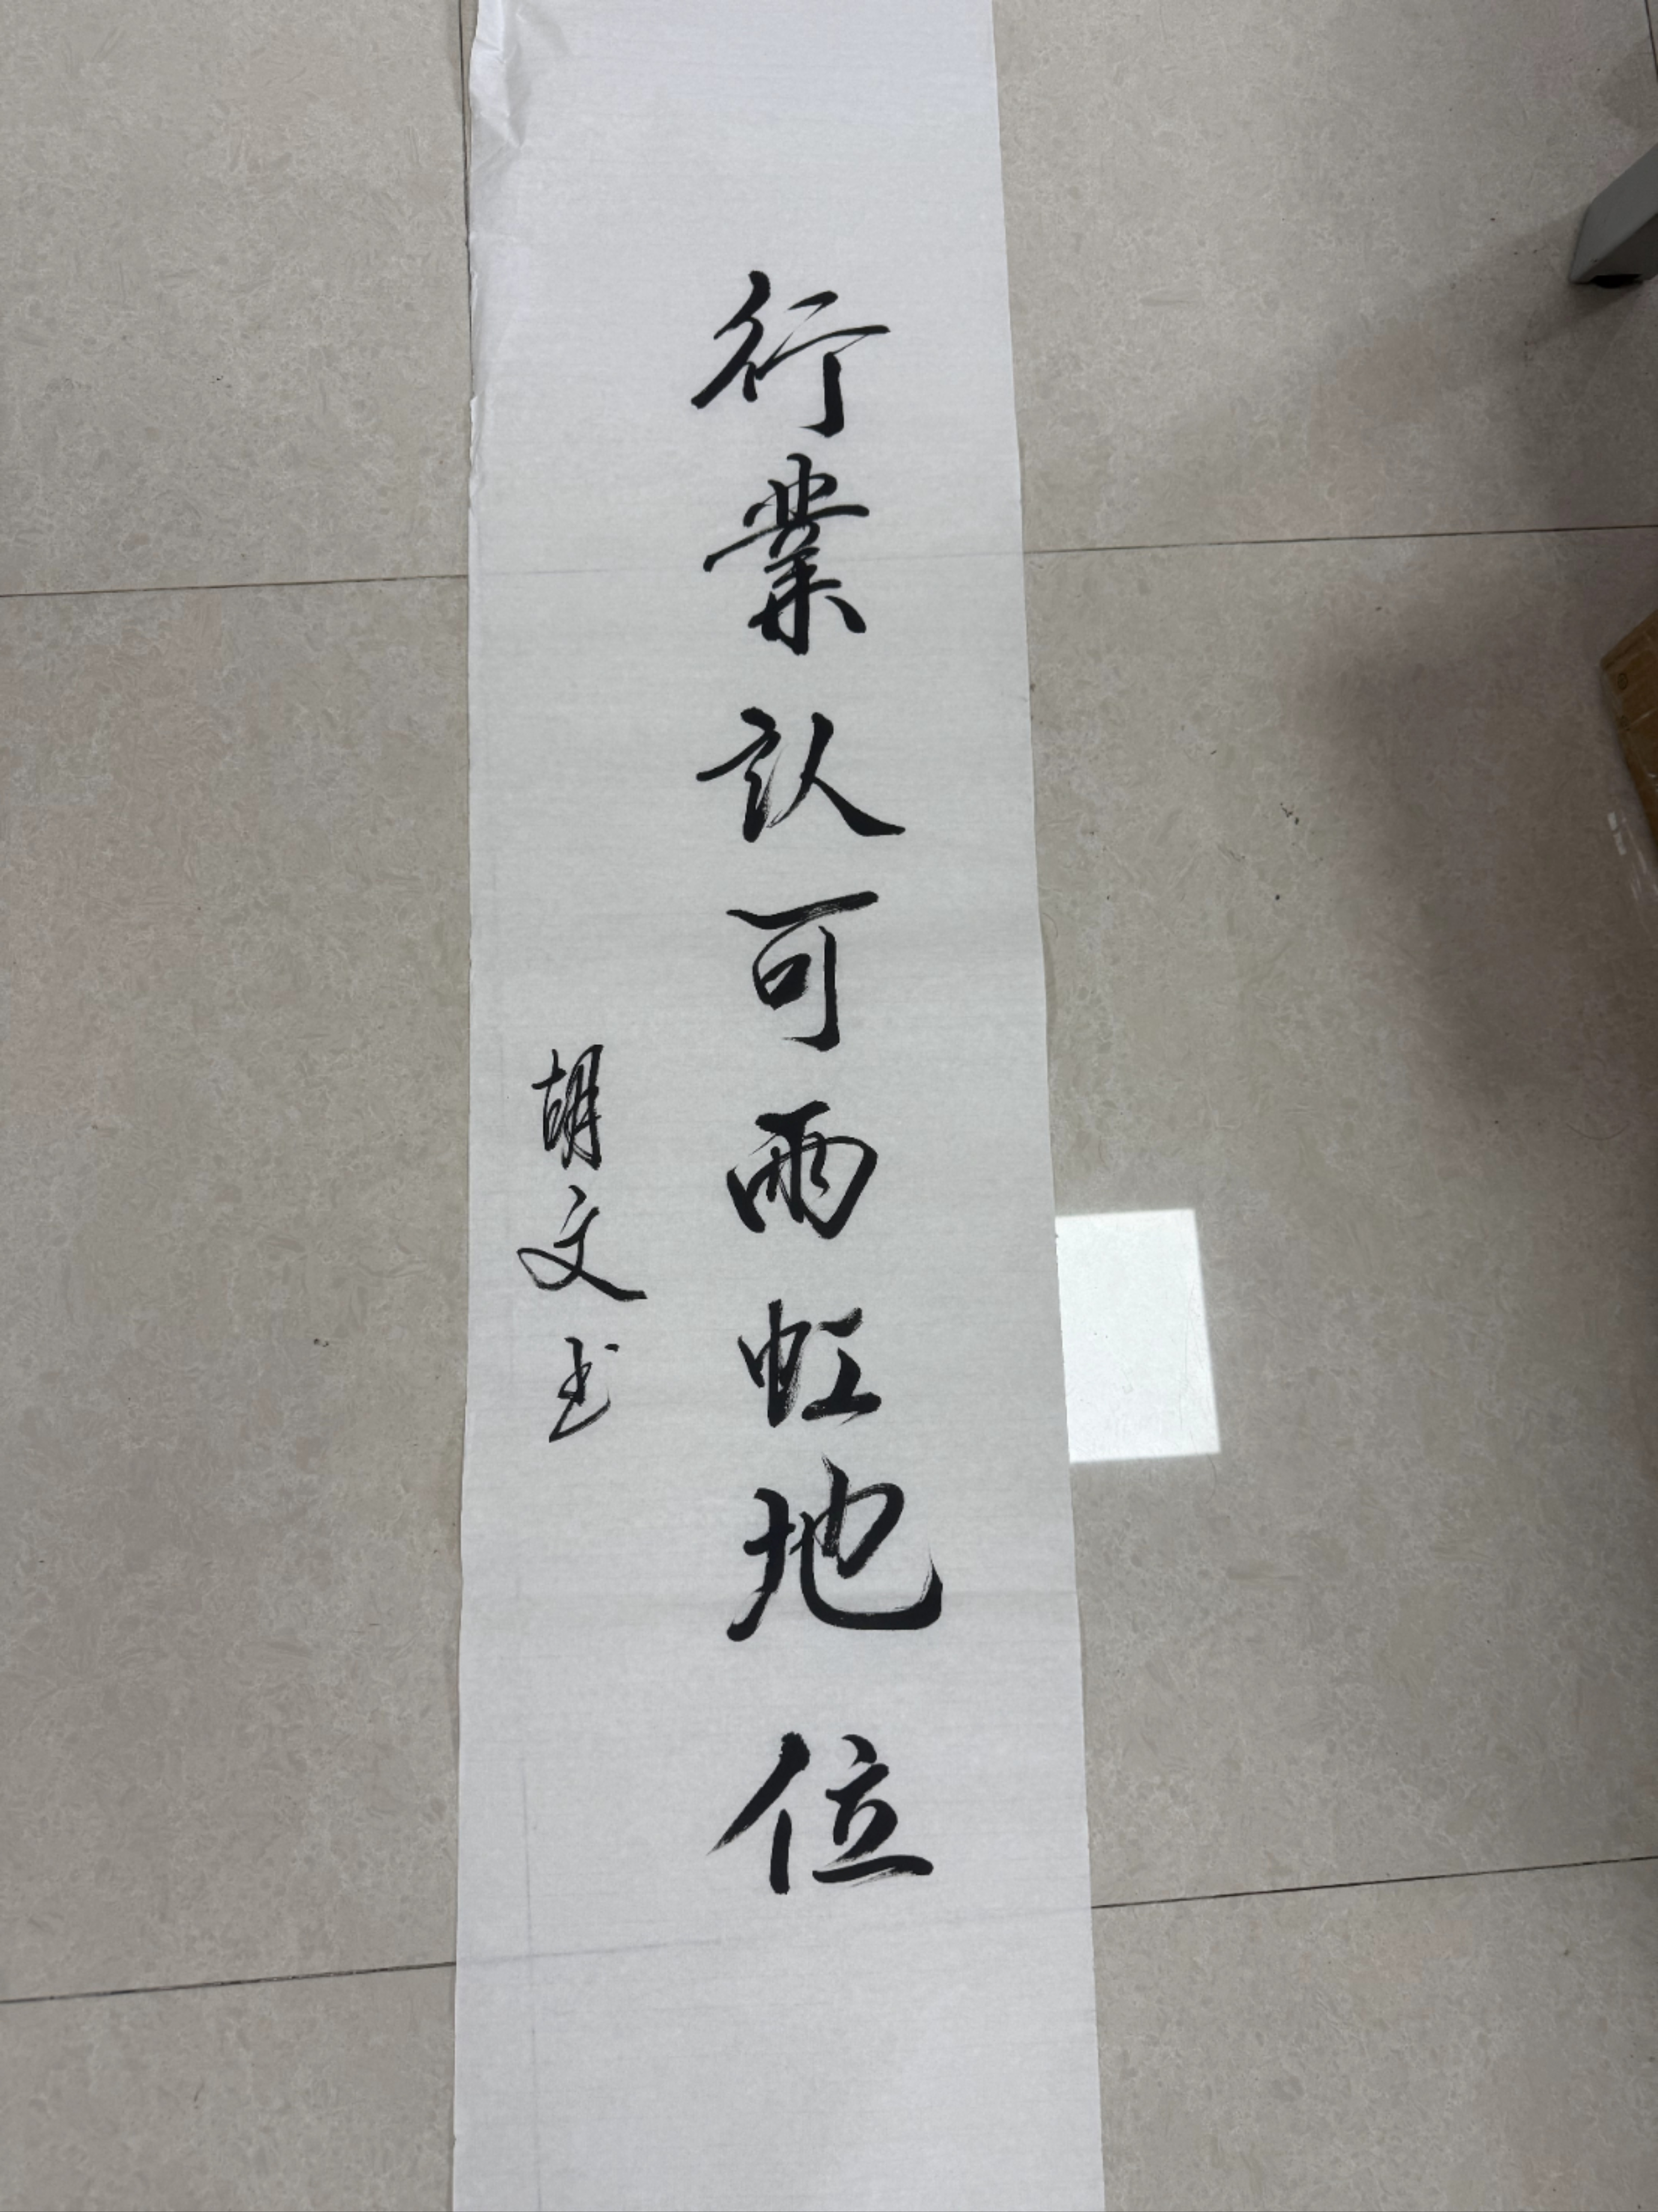 行業认可雨虹地位
胡文书